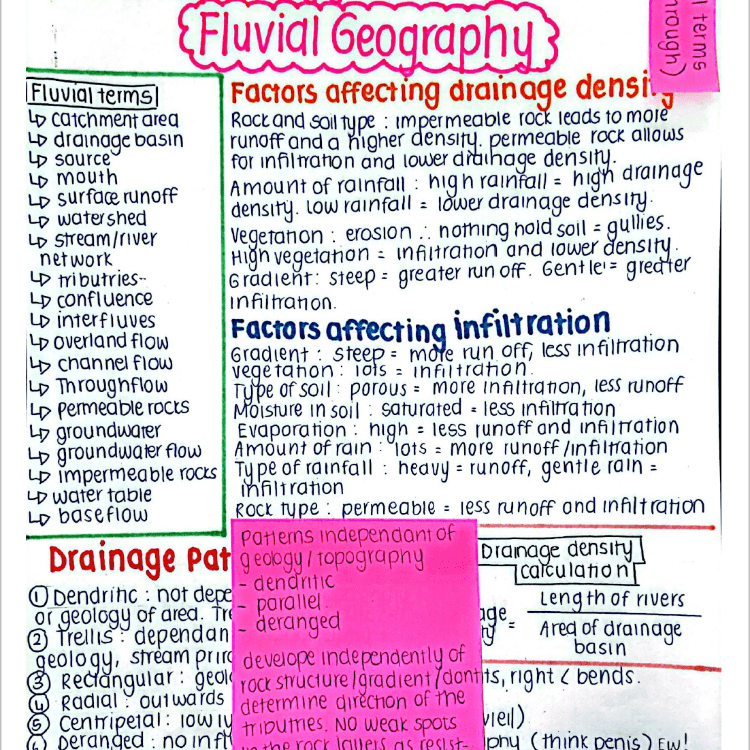 Fluvial Geography
l terms
hrough)
Fluvial terms
↳ catchment area
↳ drainage basin
↳ source
↳ mouth
↳ surface runoff
↳ watershed
↳ stream/river
network
↳ tributries--
↳ confluence
↳ interfluves
↳ overland flow
↳ channel flow
↳ Throughflow
↳ permeable rocks
↳ groundwater
↳ groundwater flow
↳ impermeable rocks
↳ water table
↳ baseflow
Factors affecting drainage densit
Rock and soil type : impermeable rock leads to more
runoff and a higher density. permeable rock allows
for infiltration and lower drainage density.
Amount of rainfall : high rainfall = high drainage
density. low rainfall = lower drainage density.
Vegetation : erosion ∴ nothing hold soil = gullies.
High vegetation = infiltration and lower density.
Gradient : steep = greater run off. Gentle = greater
infiltration.
Factors affecting infiltration
Gradient : steep = more run off, less infiltration
vegetation : lots = infiltration.
Type of soil : porous = more infiltration, less runoff
Moisture in soil : saturated = less infiltration
Evaporation : high = less runoff and infiltration
Amount of rain : lots = more runoff/infiltration
Type of rainfall : heavy = runoff, gentle rain =
infiltration
Rock type : permeable = less runoff and infiltration
Drainage Pat
① Dendritic : not depe
or geology of area. Tre
② Trellis : dependan
geology, stream prin
③ Rectangular : geol
④ Radial : outwards
⑤ Centripetal : low ly
⑥ Deranged : no infl
Patterns independant of
geology/topography
- dendritic
- parallel
- deranged
develope independently of
rock structure/gradient/dont
determine direction of the
tributries. No weak spots
in the rock layers as resist-
Drainage density
calculation
age
ty = Length of rivers
Area of drainage
basin
ts, right < bends.
vleil)
phy (think penis) Ew!